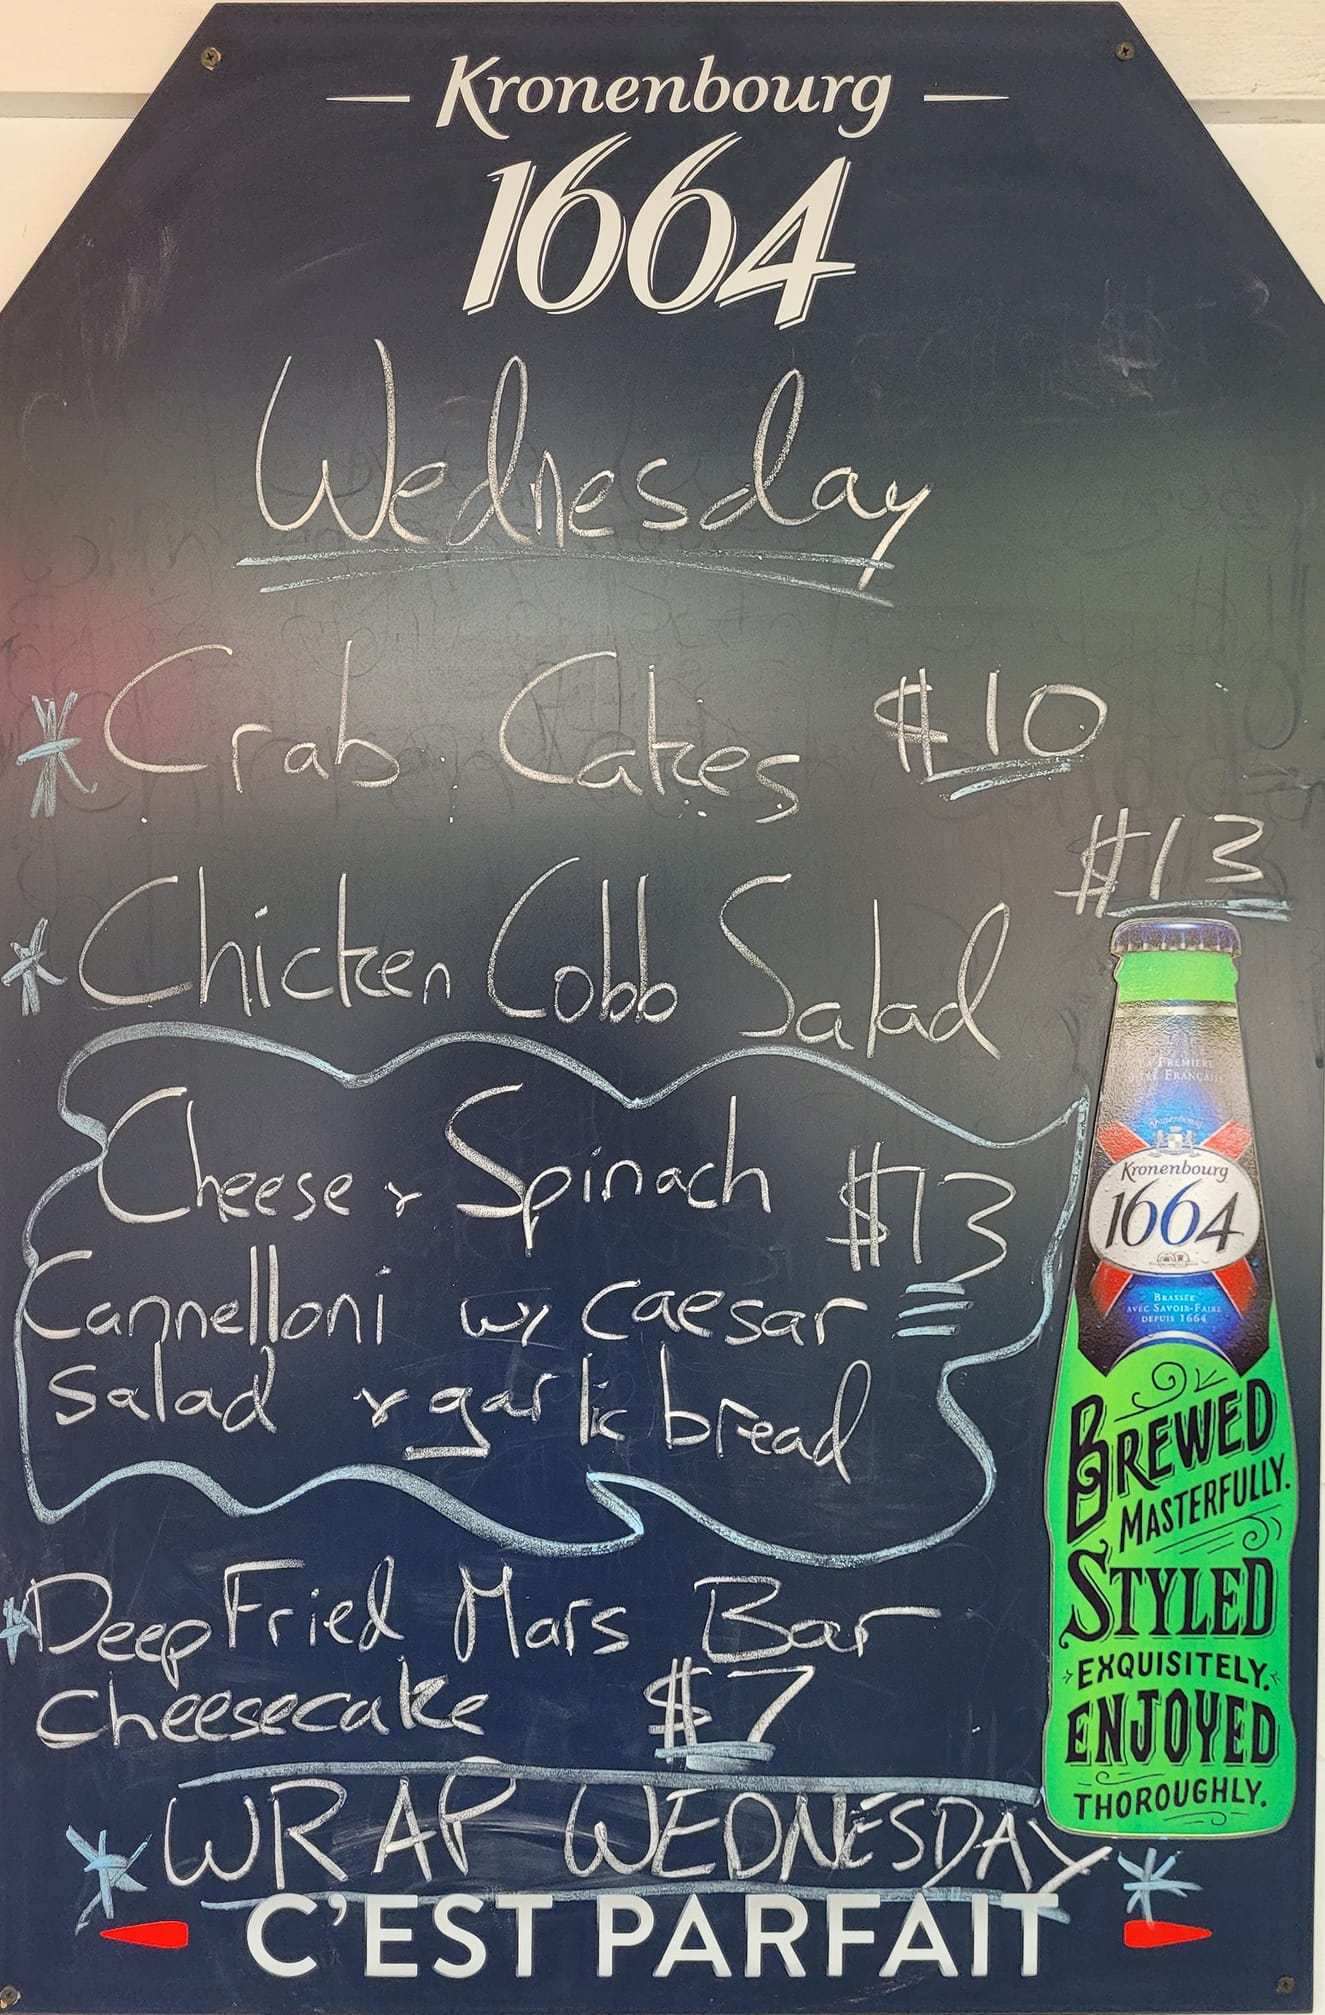 Kronenbourg
1664
Wednesday
Crab Cakes $10
$13
Chicken Cobb Salad
Cheese & Spinach $13
Cannelloni w/ caesar
Salad & garlic bread
Deep Fried Mars Bar
cheesecake $7
WRAP WEDNESDAY
C'EST PARFAIT
Kronenbourg
1664
BRASSÉE
AVEC SAVOIR-FAIRE
DEPUIS 1664
BREWED
MASTERFULLY.
STYLED
EXQUISITELY.
ENJOYED
THOROUGHLY.